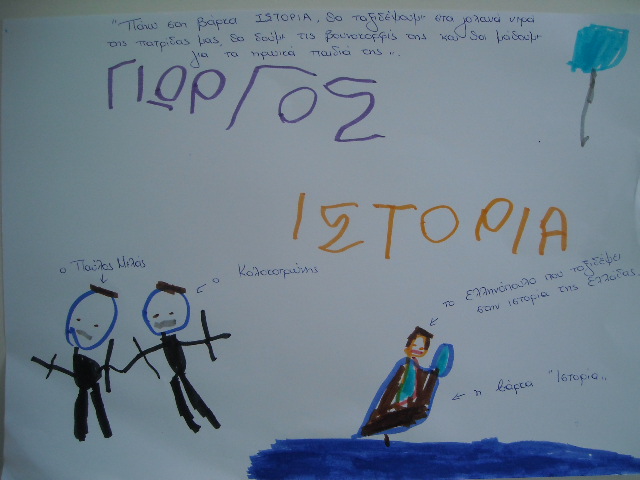 "Πάνω στη βάρκα ΙΣΤΟΡΙΑ, θα ταξιδέψουμε στα γαλανά νερά
της πατρίδας μας, θα δούμε τις βουνοκορφές της και θα μάθουμε
για τα ηρωικά παιδιά της"
ΓΙΩΡΓΟΣ
ΙΣΤΟΡΙΑ
ο Παύλος Μελάς
ο Κολοκοτρώνης
το Ελληνόπουλο που ταξιδέψει
στην ιστορία της Ελλάδας.
η βάρκα "Ιστορία"